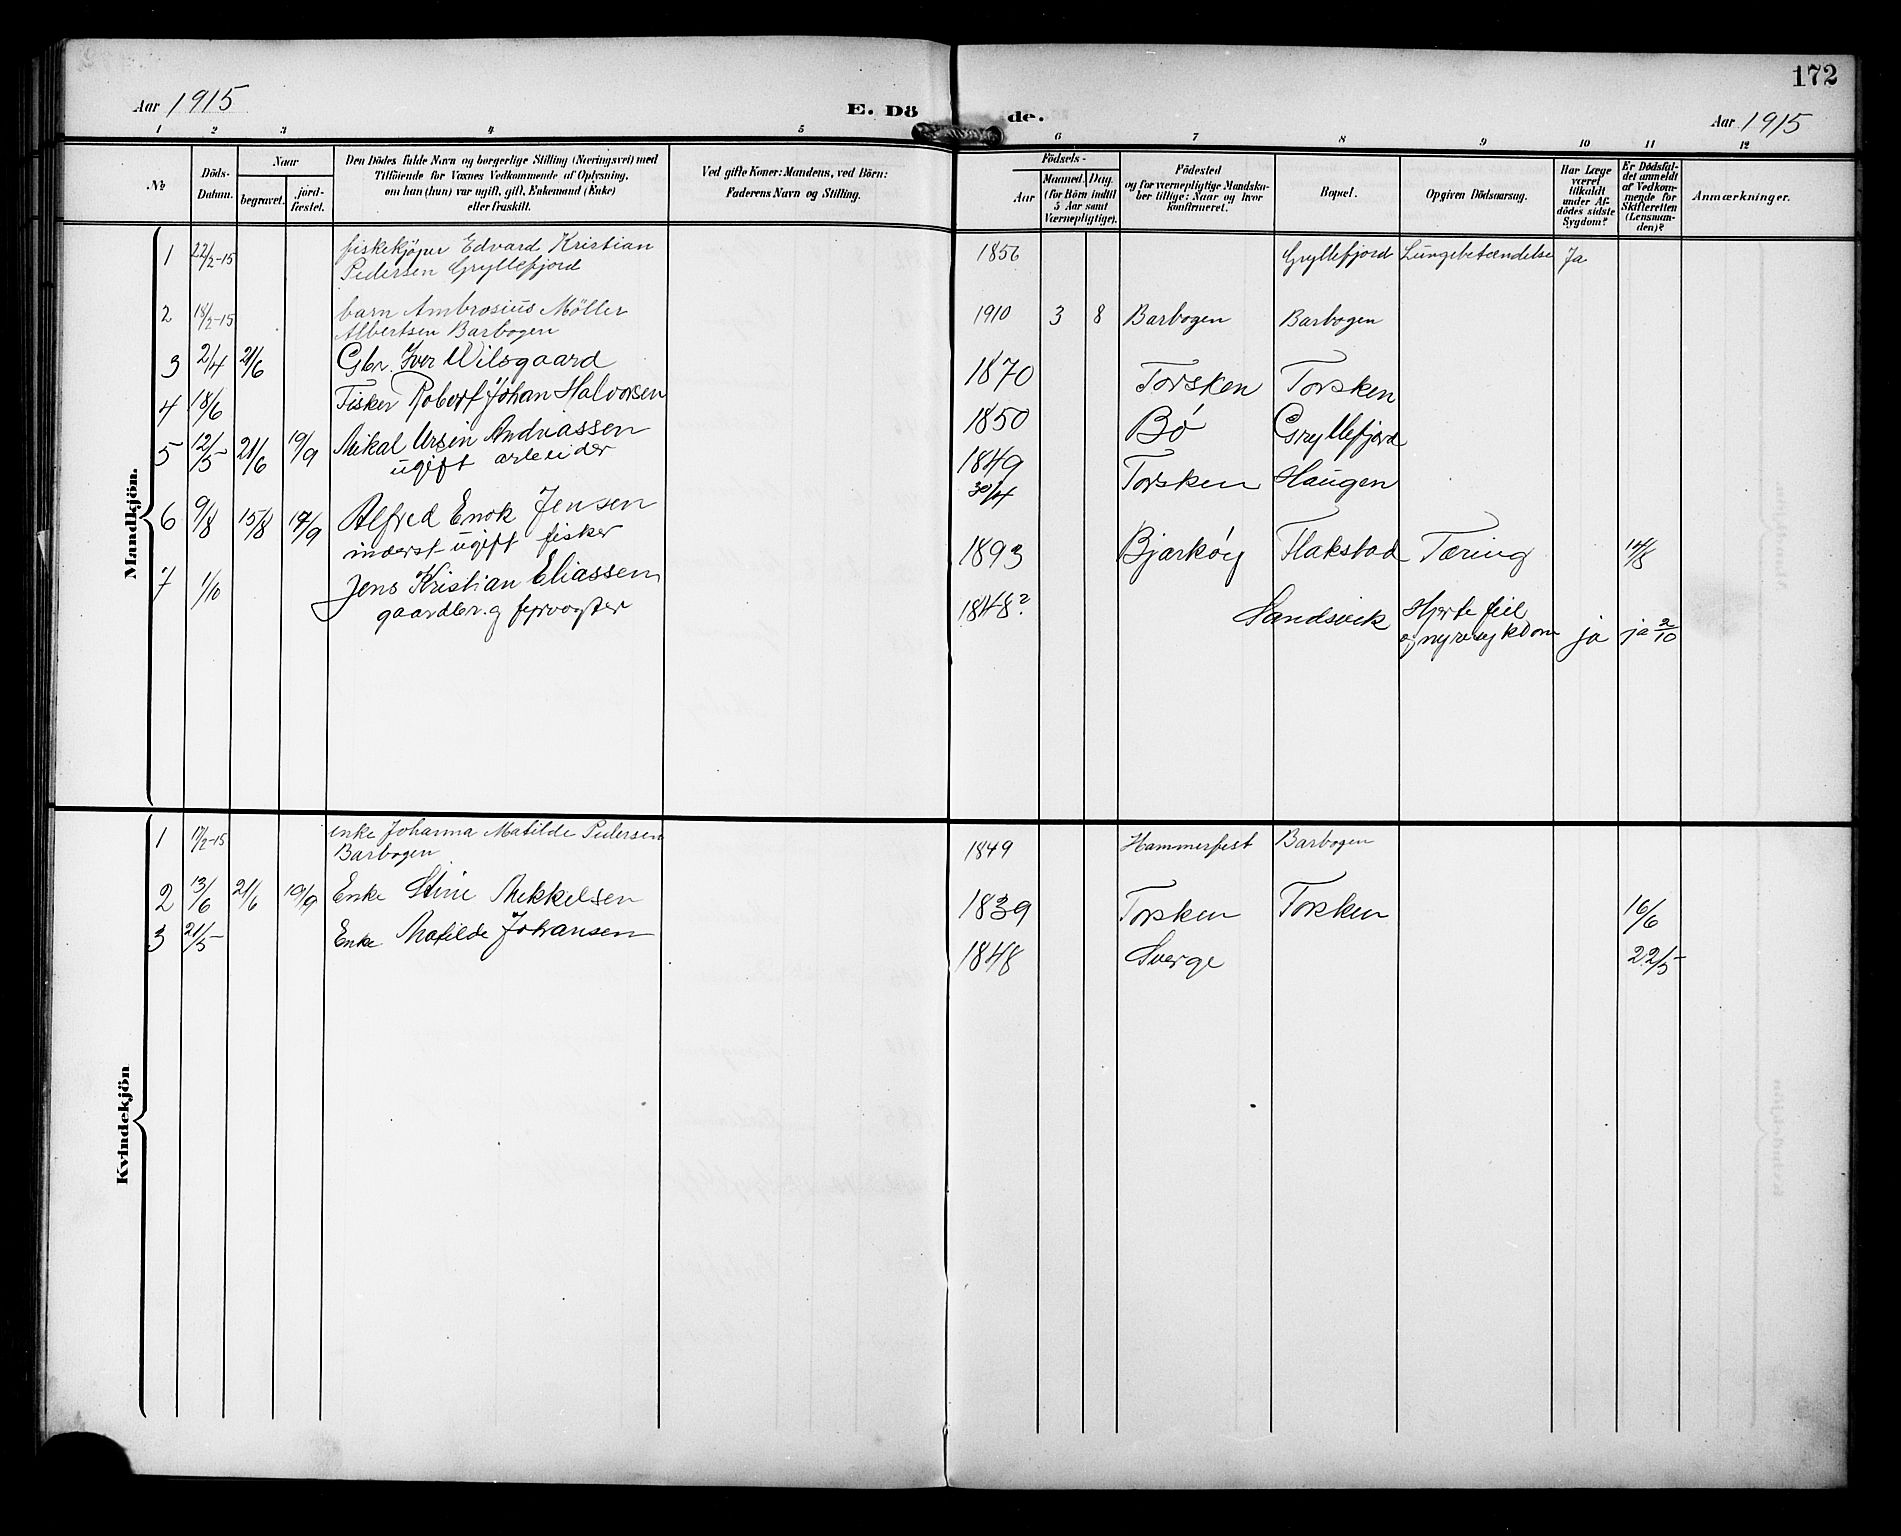 172
Aar 1915
E. Dö
de.
Aar 1915
1 2 3 4 5 6 7 8 9 10 11 12
No
Döds-
Datum.
Naar
begravet.
jord-
fæstet.
Den Dödes fulde Navn og borgerlige Stilling (Næringsvei) med
Tilföiende for Voxnes Vedkommende af Oplysning,
om han (hun) var ugift, gift, Enkemand (Enke)
eller fraskilt.
Ved gifte Koner: Mandens, ved Börn:
Faderens Navn og Stilling.
Födsels-
Aar
Maaned. Dag.
(for Börn indtil
5 Aar samt
Værnepligtige).
Födested
og for værnepligtige Mandska-
ber tillige: Naar og hvor
konfirmeret.
Bopæl.
Opgiven Dödsaarsag.
Har Læge
været
tilkaldt
under Af-
dödes sidste
Sygdom?
Er Dödsfal-
det anmeldt
af Vedkom-
mende for
Skifteretten
(Lensman-
den)?
Anmærkninger.
Mandkjön.
1 22/2-15 fiskekjöper Edvard Kristian 1856 Gryllefjord Lungebetændelse Ja
Pedersen Gryllefjord
2 18/2-15 barn Ambrosius Möller 1910 3 8 Barbogen Barbogen
Albertsen Barbogen
3 2/4 21/6 Gbr. Iver Wilsgaard 1870 Torsken Torsken
4 18/6 Fisker Robert Johan Halvorsen 1850 Bø Gryllefjord
5 12/5 21/6 19/9 Mikal Ursin Andreassen 1849 Torsken Haugen
ugift arbeider 30/4
6 9/8 15/8 17/9 Alfred Enok Jensen 1893 Bjarköy Flakstad Tæring 14/8
inderst ugift fisker
7 1/10 Jens Kristian Eliassen 1848? Sandsvik Hjertefeil
gaardbr. og fyrvogter og nyresykdom ja ja 2/10
Kvindekjön
1 17/2-15 enke Johanna Matilde Pedersen 1849 Hammerfest Barbogen
Barbogen
2 13/6 21/6 19/9 Enke Stine Mekkelsen 1839 Torsken Torsken 16/6
3 21/5 Enke Matilde Johansen 1848 Sverge 22/5